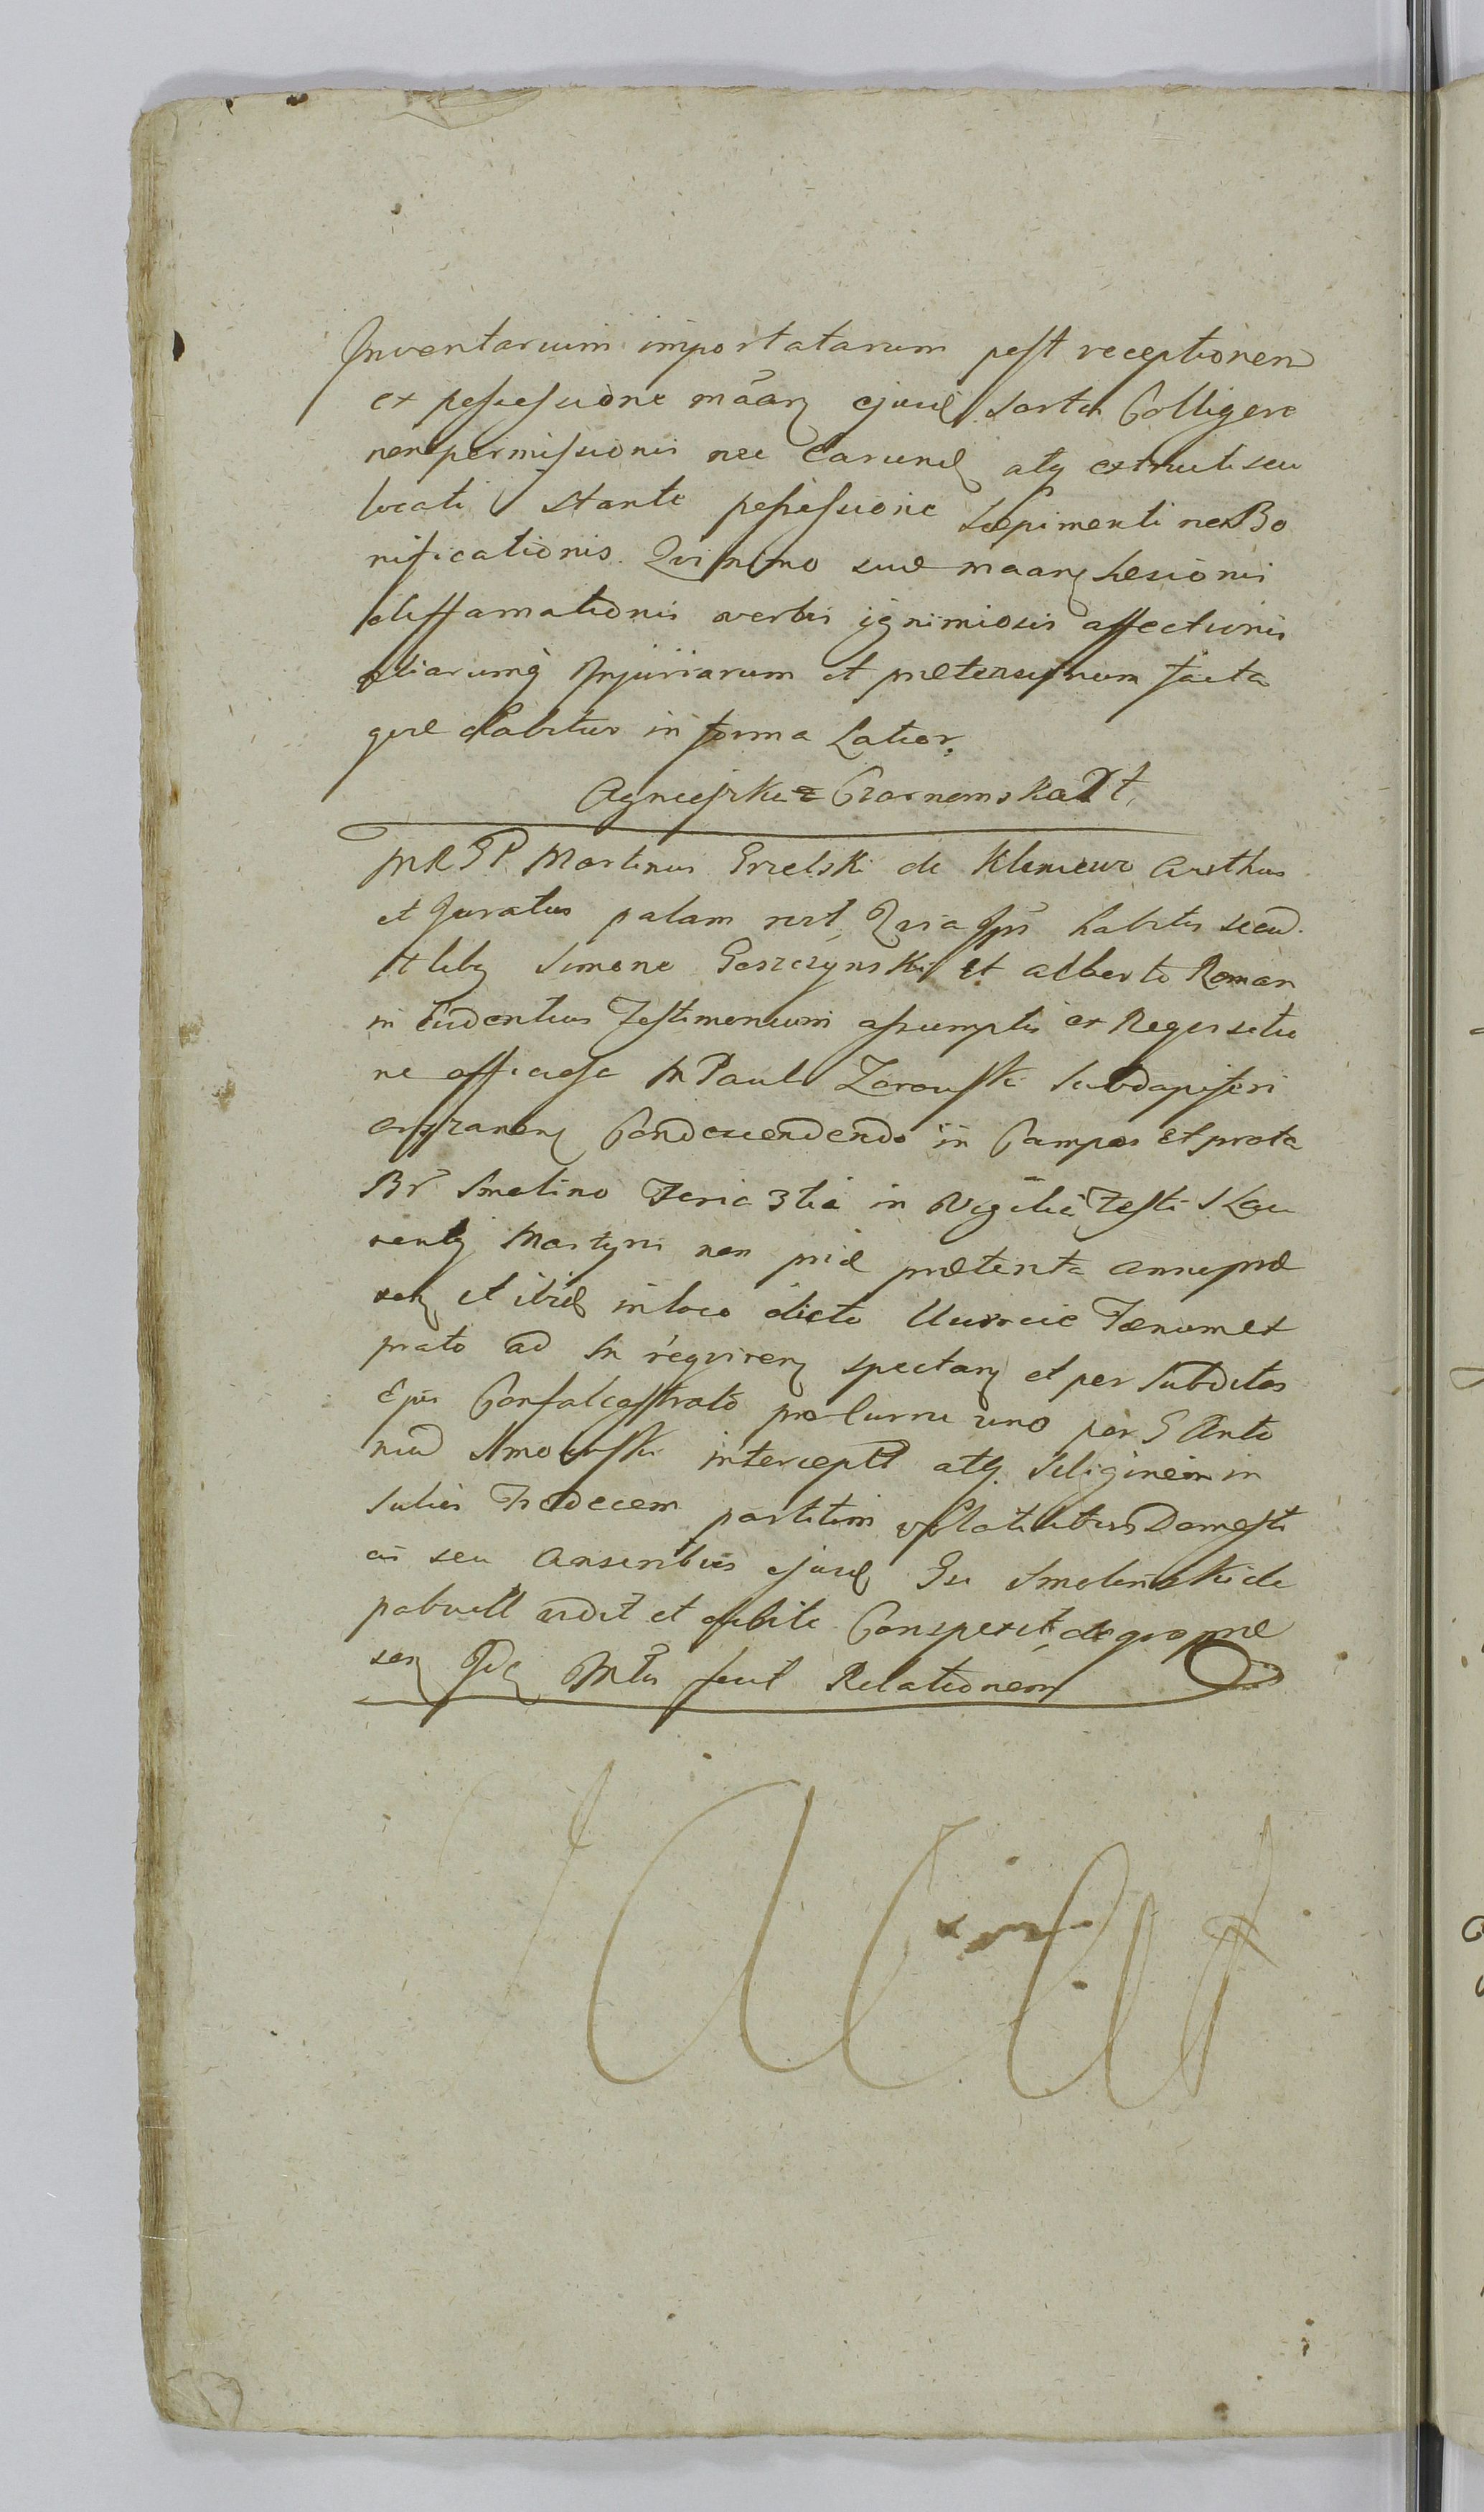 Inventarium importatarum post receptionem
ex possessione mãarũ ejusd sortes Colligere
non permissionis nec earund atq extructi seu
locati Stante possessione Sæpimenti non Bo
nificationis Quinimo suæ maarũ læsionis
diffamationis verbis ignimiosis affectionis
aliarumq Injuriarum et prætensionum facta
quæ dabitur in forma Latior.
Agnieszka z Czarnomska
MRGP Martinus Grzelski de Kleniewo authus
et Juratus palam rect Quia Ips habitis secum
Nlibq Simone Goszczynski et alberto Roman
in Evidentius Testimonium assumptis ex Requisitio
ne officiosa M Pauli Subdapiferi
Condescendendo in Campos et prata
Br Smolino Feria 3tia in Vigilia Festi S Lau
rentij Martyris non pride præterita anni præ
sen et ibid in loco dicto Fænum ex
prato ad M requiren spectan et per Subditos
Ejus Confalcastrato pro Curru uno per G Anto
nium intercept atq Siliginem in
Sulcis Tredecem partitim volatilibus Domesti
cis seu anseribus ejusd Gsi Smolenski de
pabulat vidit et debite Conspexit de quo præ
sen Ide Mtus fecit Relationem